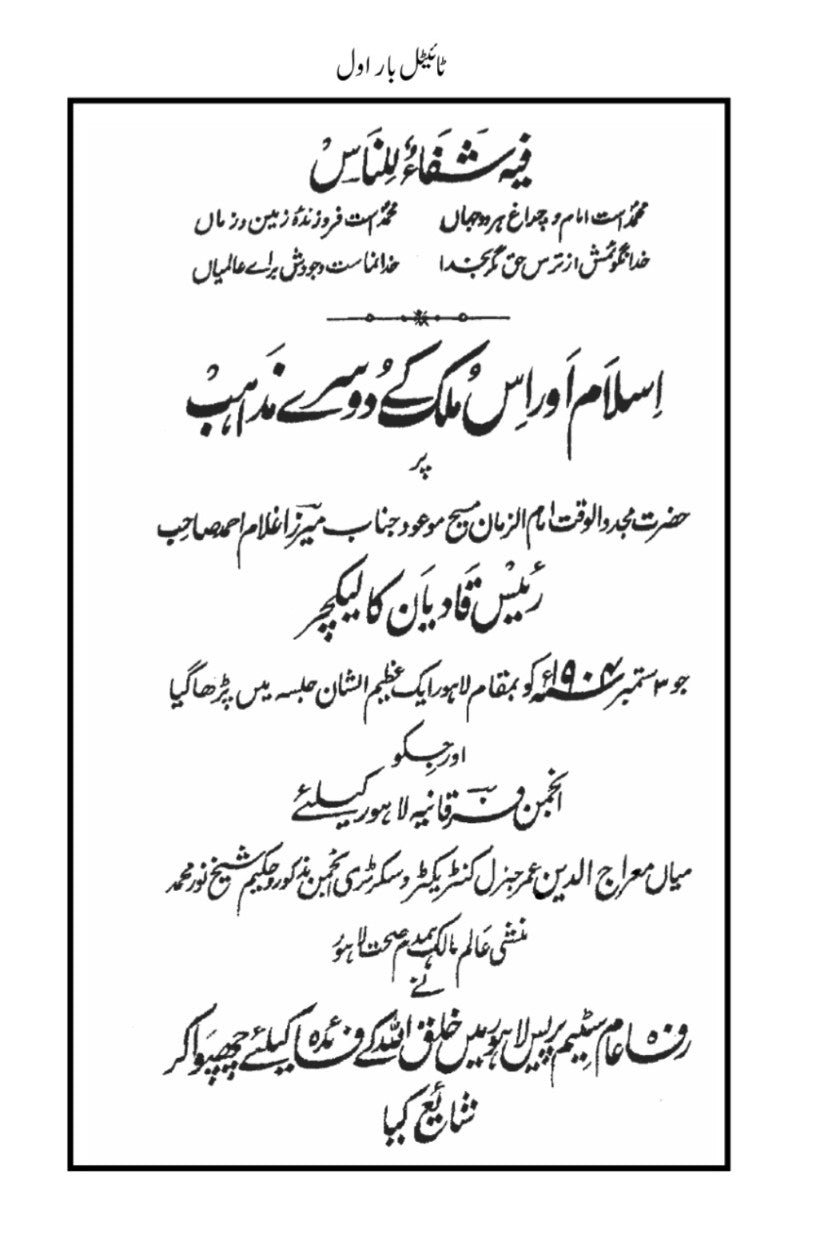 ٹائیٹل بار اول
فِیہِ شَفَاءٌ لِلنَّاسِ
محمدؐ است امام و چراغ ہر دو جہاں محمدؐ است فروزندۂ زمین و زماں
خدا نگوئمش از ترس حق مگر بخدا خدا نماست وجودش برائے عالمیاں
اِسلَام اَور اِس مُلک کے دُوسرے مذَاہبْ
پر
حضرت مجدد الوقت امام الزمان مسیح موعود جناب میرزا غلام احمد صاحب
رئیس قادیان کا لیکچر
جو ۳ ستمبر ۱۹۰۴ء کو بمقام لاہور ایک عظیم الشان جلسہ میں پڑھا گیا
اور جسکو
انجمن فرقانیہ لاہور کیلئے
میاں معراج الدین عمر جنرل کنٹریکٹر و سکرٹری انجمن مذکور و حکیم شیخ نور محمد
منشی عالم مالک ہمدم صحت لاہور
نے
رفاہ عام سٹیم پریس لاہور میں خلق اللہ کے فائدہ کیلئے چھپوا کر
شایع کیا